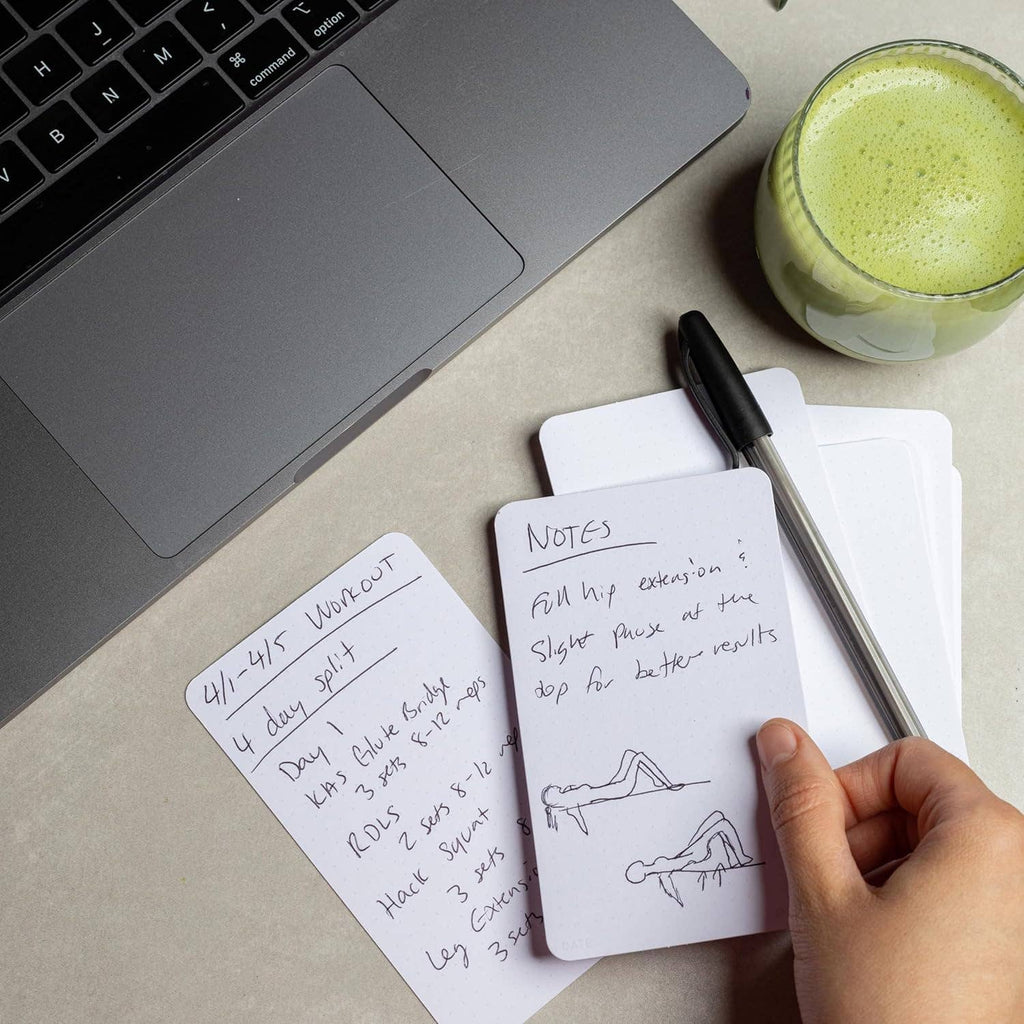 J
<
,
⌥
option
H
M
⌘
command
N
B
V
4/1-4/5 WORKOUT
4 day split
Day 1
KAS Glute Bridge
3 sets 8-12 reps
RDLS
2 sets 8-12 rep
Hack Squat
3 sets 8
Leg Extensi
3 sets
NOTES
Full hip extension &
Slight pause at the
top for better results
DATE